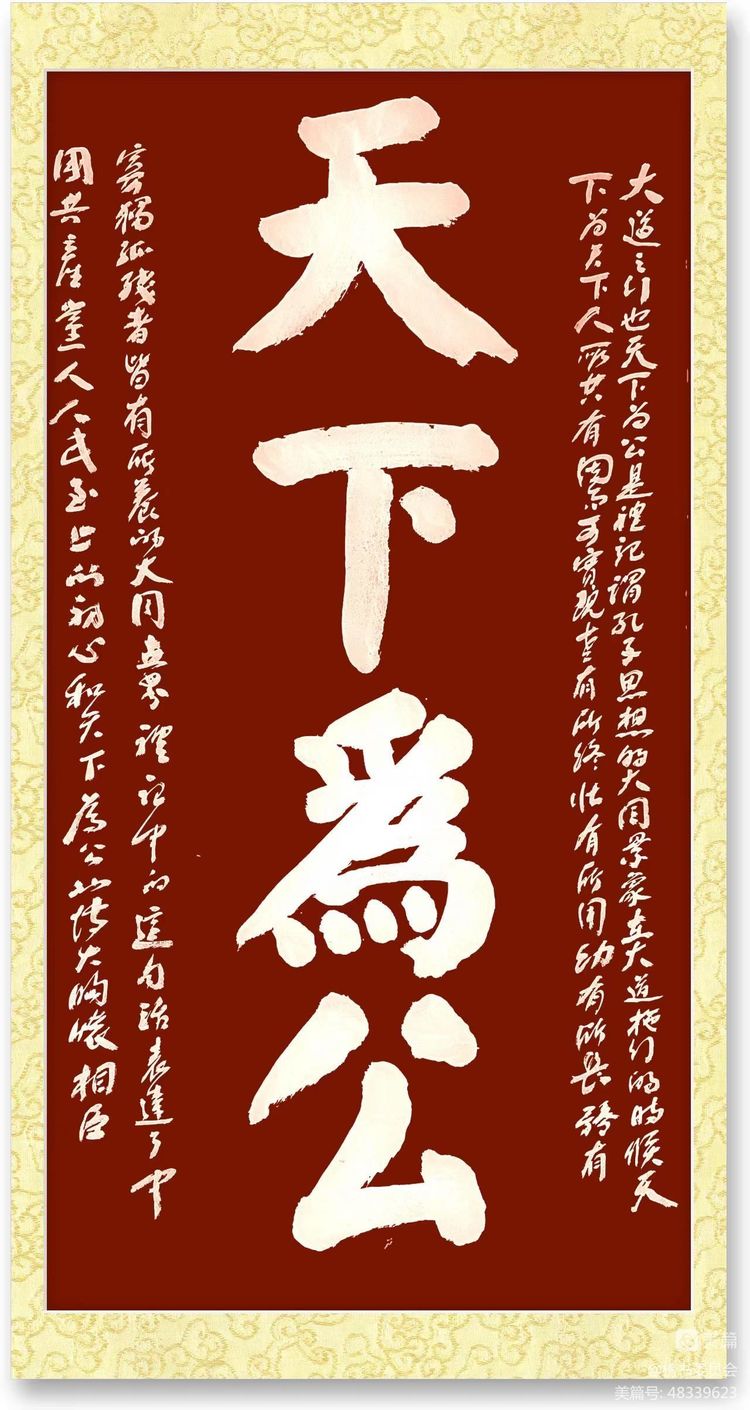 天下為公
大道之行也天下为公是禮记谓孔子思想的大同景象在大道施行的時候天
下为天下人所共有因而可實現老有所终壮有所用幼有所長矜有
寡獨孤殘者皆有所養的大同世界禮记中的這句話表達了中
國共產黨人人民至上的初心和天下為公的博大胸懷相
美篇
会
美篇号: 48339623